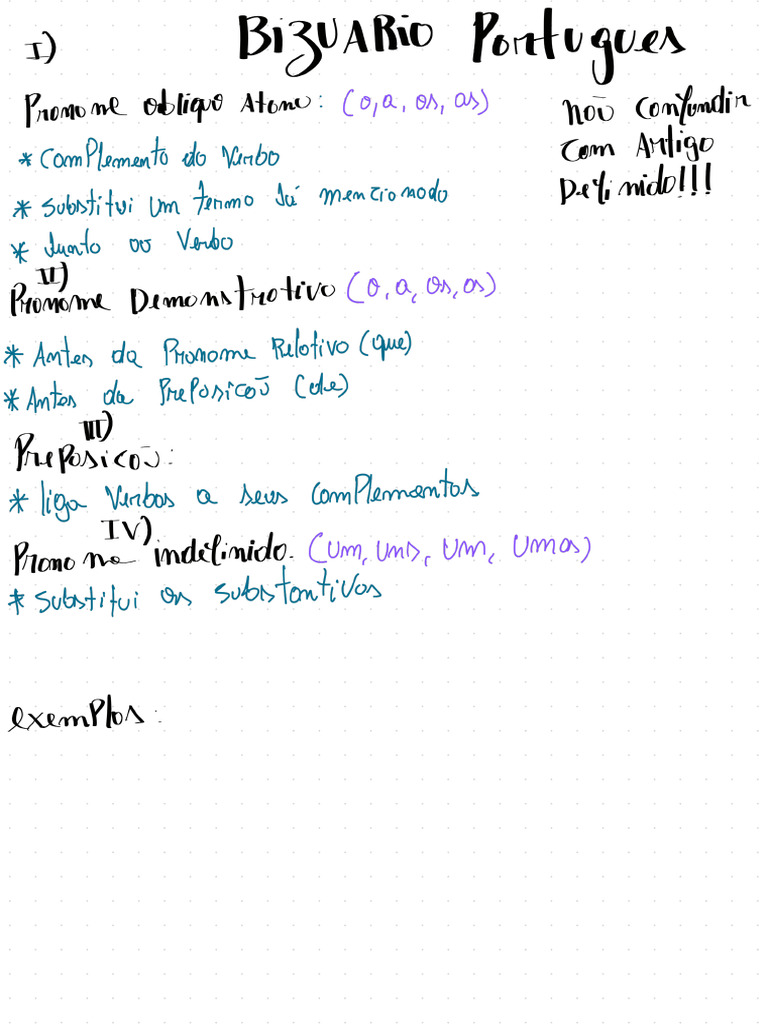 I) BIZUARIO Portugues
Pronome obliquo Atono: (o, a, os, as)
Não confundir
com Artigo
Definido!!!
* Complemento do Verbo
* Substitui um termo Já mencionado
* Junto ao Verbo
II)
Pronome Demonstrativo (o, a, os, as)
* Antes da Pronome Relativo (que)
* Antes da Preposicão (de)
III)
Preposicão:
* liga Verbos a seus complementos
IV)
Pronome indefinido. (um, uns, um, umas)
* Substitui os substantivos
exemplos: